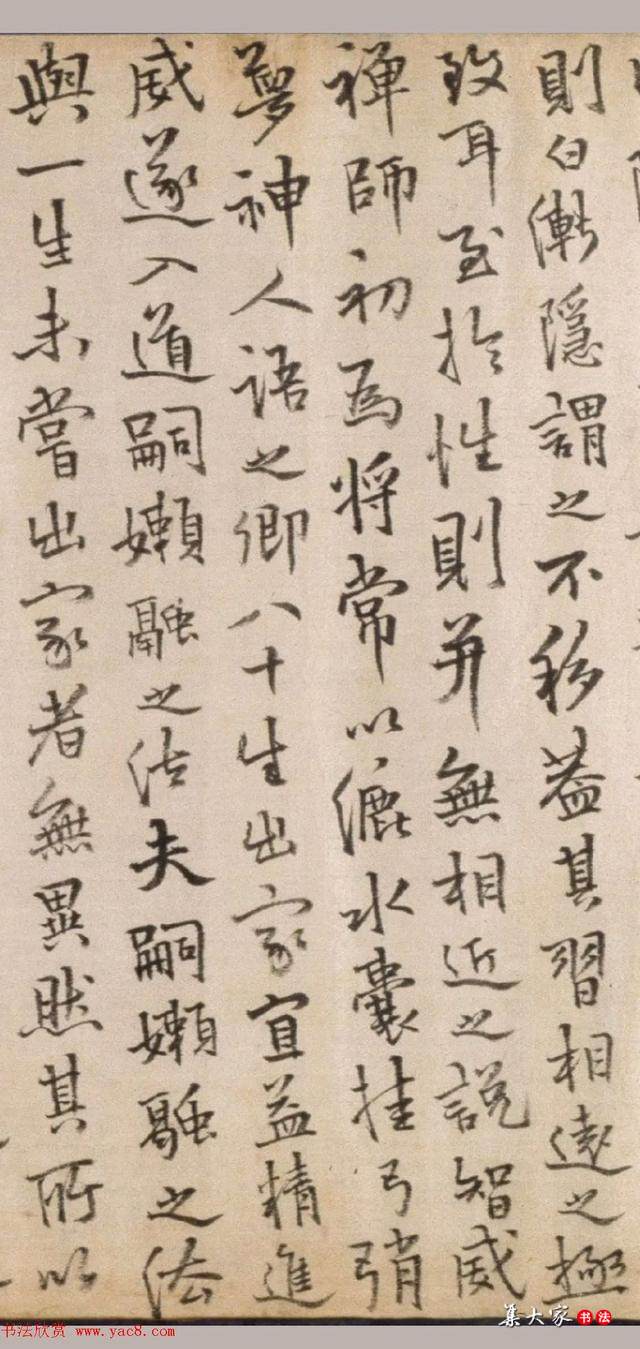 則白漸隱謂之不移蓋其習相遠之極
致耳至於性則并無相近之說智威
禪師初為將常以漉水囊挂弓弰
夢神人語之卿八十生出家宜益精進
威遂入道嗣嬾融之法夫嗣嬾融之法
與一生未嘗出家者無異然其所以
书法欣赏 www.yac8.com
集大家 书法